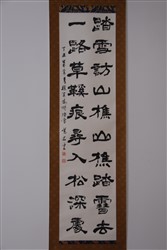 踏雪訪山樵山樵踏雪去
一路草鞵痕尋入松深處